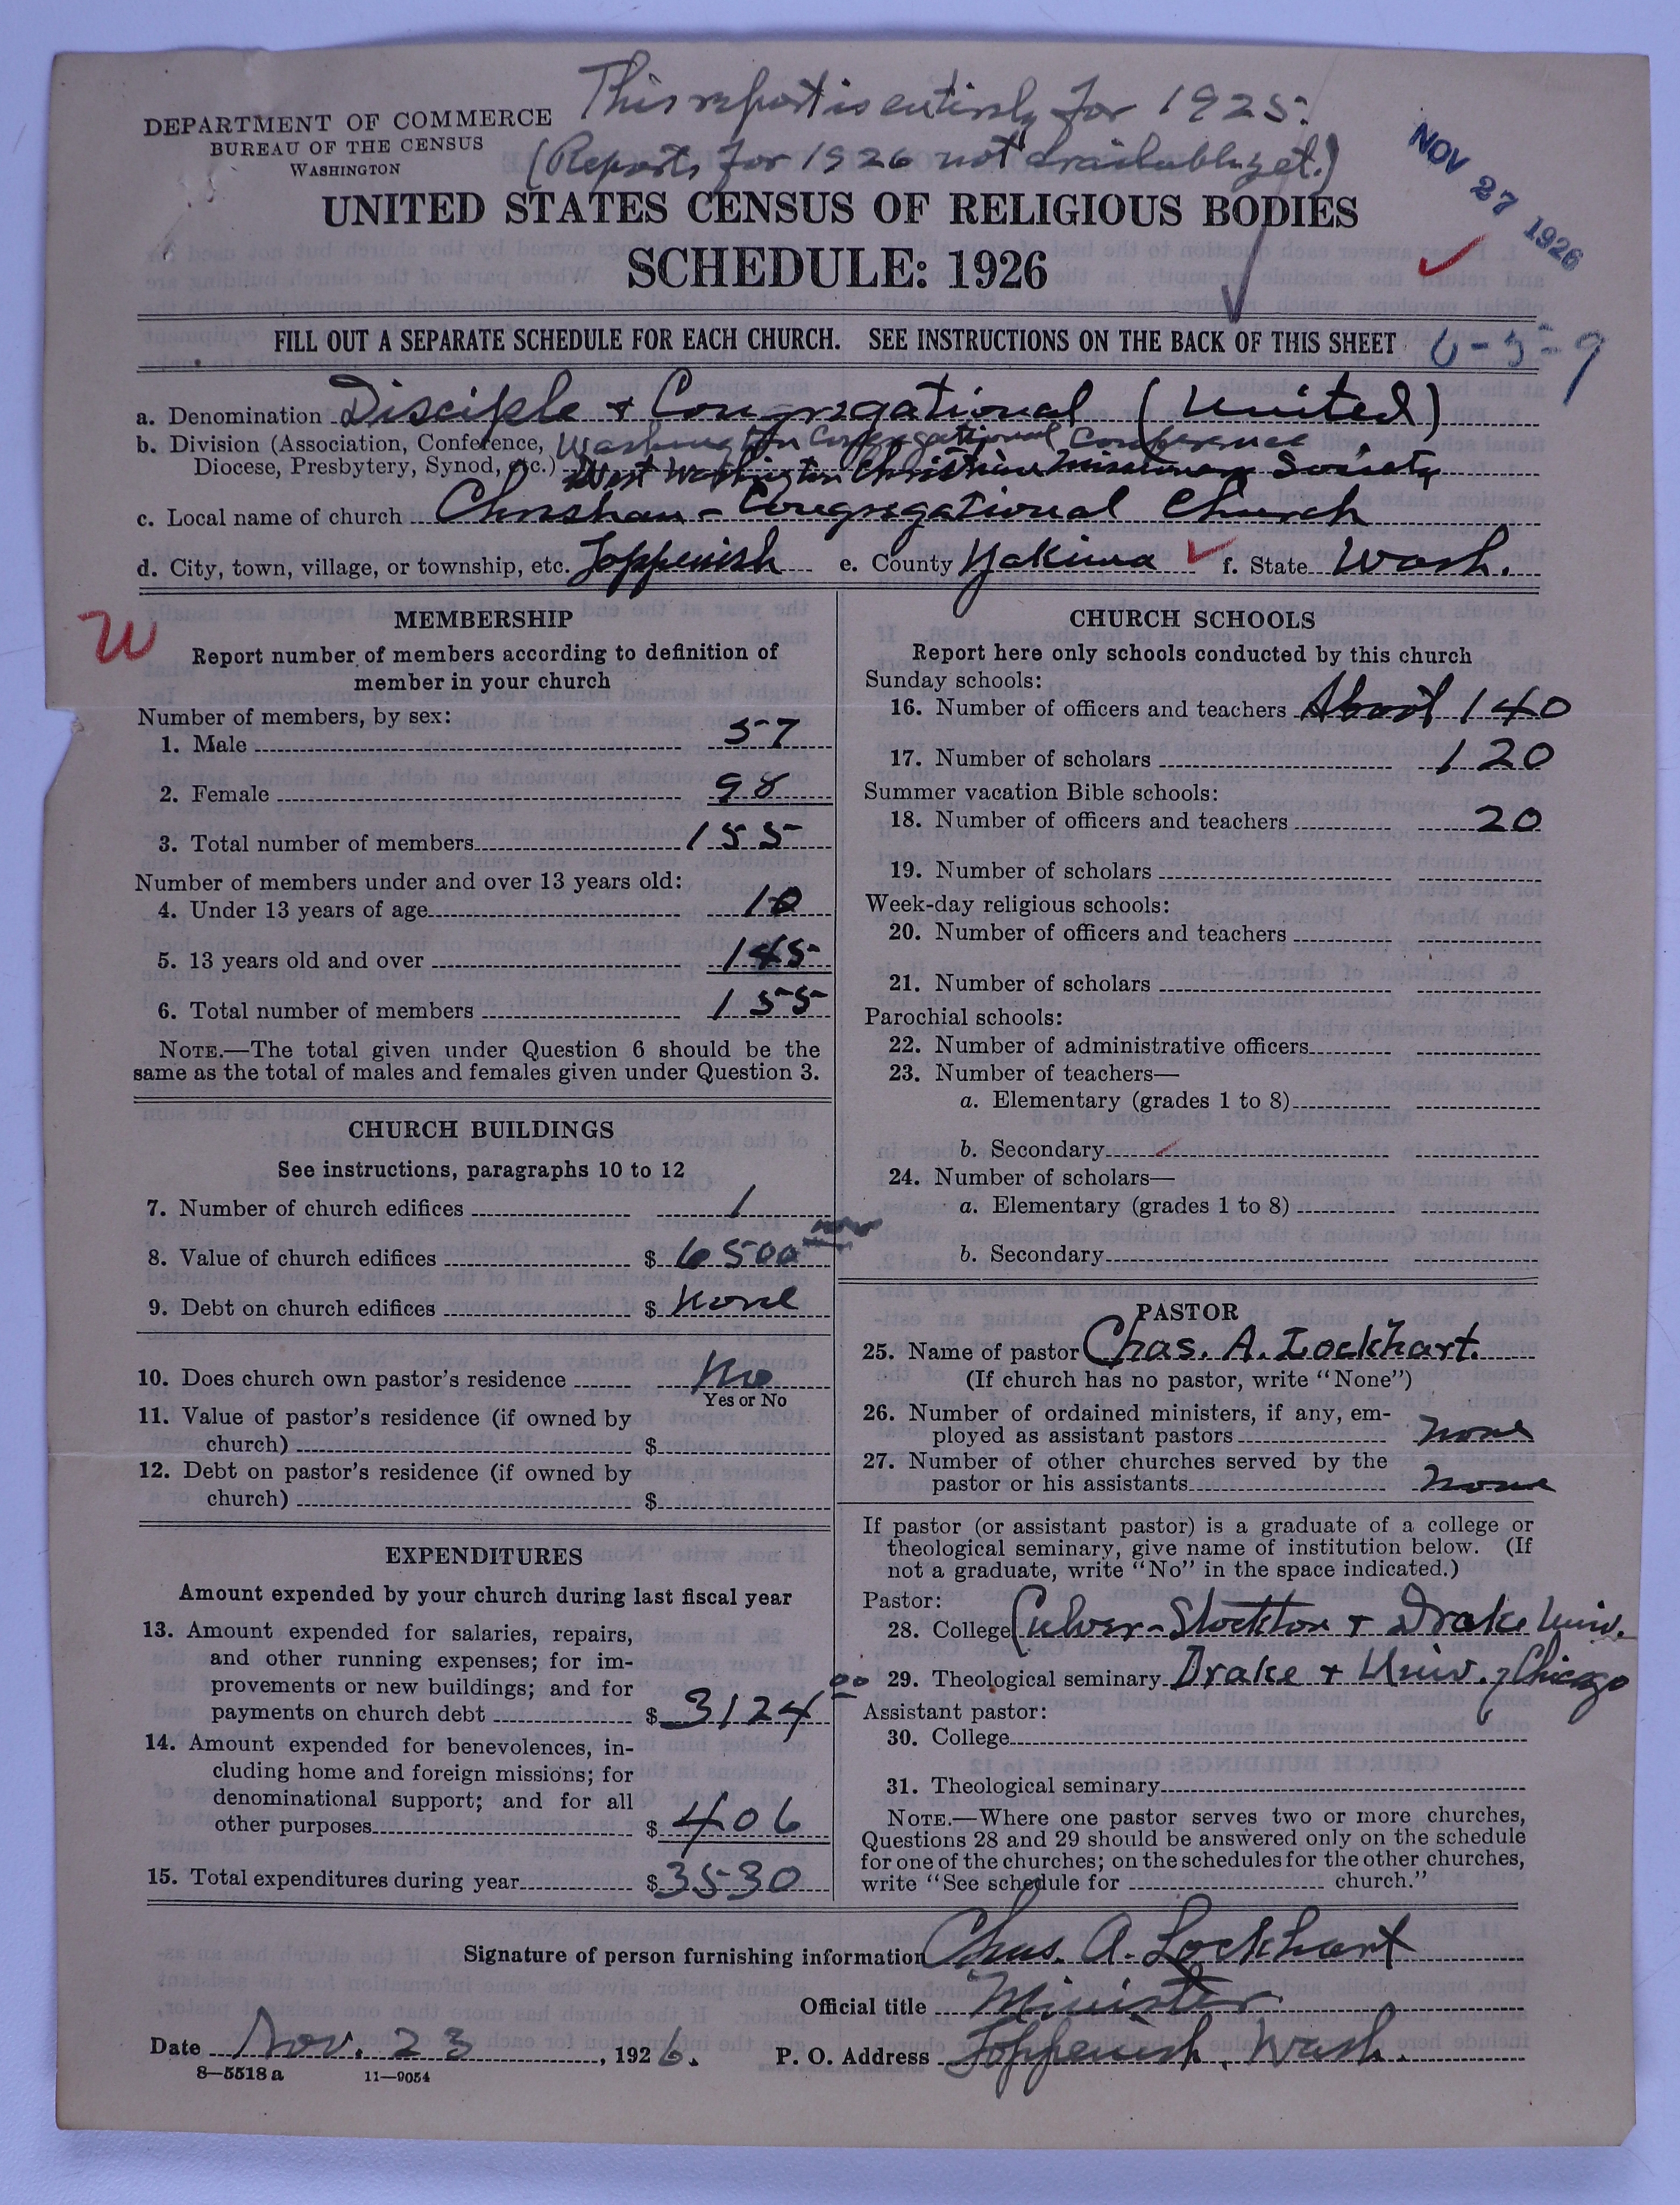 This report is entirely for 1925.
(Reports for 1926 not available yet.)
DEPARTMENT OF COMMERCE
BUREAU OF THE CENSUS
WASHINGTON
NOV 27 1926
UNITED STATES CENSUS OF RELIGIOUS BODIES
SCHEDULE: 1926
FILL OUT A SEPARATE SCHEDULE FOR EACH CHURCH. SEE INSTRUCTIONS ON THE BACK OF THIS SHEET
6-5-9
a. Denomination Disciple & Congregational (United)
b. Division (Association, Conference, Washington Congregational Conference
Diocese, Presbytery, Synod, etc.) West Washington Christian Missionary Society
c. Local name of church Christian-Congregational Church
d. City, town, village, or township, etc. Toppenish e. County Yakima f. State Wash.
W
MEMBERSHIP
Report number of members according to definition of
member in your church
Number of members, by sex:
1. Male 57
2. Female 98
3. Total number of members 155
Number of members under and over 13 years old:
4. Under 13 years of age 10
5. 13 years old and over 145
6. Total number of members 155
NOTE.—The total given under Question 6 should be the
same as the total of males and females given under Question 3.
CHURCH BUILDINGS
See instructions, paragraphs 10 to 12
7. Number of church edifices 1
8. Value of church edifices $ 6500
9. Debt on church edifices $ None
10. Does church own pastor's residence No
Yes or No
11. Value of pastor's residence (if owned by
church) $
12. Debt on pastor's residence (if owned by
church) $
EXPENDITURES
Amount expended by your church during last fiscal year
13. Amount expended for salaries, repairs,
and other running expenses; for im-
provements or new buildings; and for
payments on church debt $ 3124 00
14. Amount expended for benevolences, in-
cluding home and foreign missions; for
denominational support; and for all
other purposes $ 406
15. Total expenditures during year $ 3530
CHURCH SCHOOLS
Report here only schools conducted by this church
Sunday schools:
16. Number of officers and teachers About 140
17. Number of scholars 120
Summer vacation Bible schools:
18. Number of officers and teachers 20
19. Number of scholars
Week-day religious schools:
20. Number of officers and teachers
21. Number of scholars
Parochial schools:
22. Number of administrative officers
23. Number of teachers—
a. Elementary (grades 1 to 8)
b. Secondary
24. Number of scholars—
a. Elementary (grades 1 to 8)
b. Secondary
PASTOR
25. Name of pastor Chas. A. Lockhart.
(If church has no pastor, write "None")
26. Number of ordained ministers, if any, em-
ployed as assistant pastors None
27. Number of other churches served by the
pastor or his assistants None
If pastor (or assistant pastor) is a graduate of a college or
theological seminary, give name of institution below. (If
not a graduate, write "No" in the space indicated.)
Pastor:
28. College Culver-Stockton & Drake Univ.
29. Theological seminary Drake & Univ. of Chicago
Assistant pastor:
30. College
31. Theological seminary
NOTE.—Where one pastor serves two or more churches,
Questions 28 and 29 should be answered only on the schedule
for one of the churches; on the schedules for the other churches,
write "See schedule for church."
Signature of person furnishing information Chas. A. Lockhart
Official title Minister
Date Nov. 23, 1926. P. O. Address Toppenish, Wash.
8—5518 a 11—9054